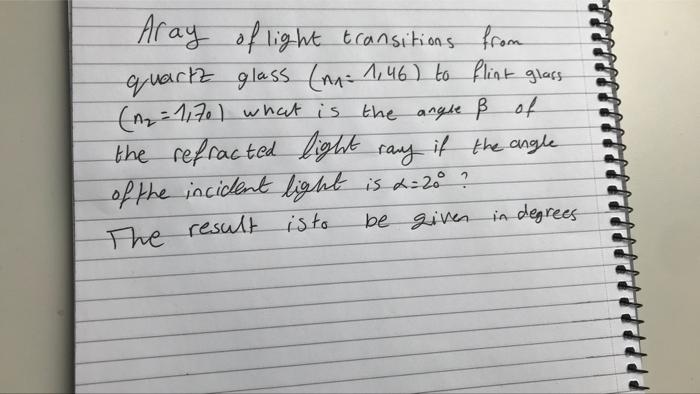 A ray of light transitions from
quartz glass (n1=1,46) to flint glass
(n2=1,70) what is the angle β of
the refracted light ray if the angle
of the incident light is α=20° ?
The result is to be given in degrees